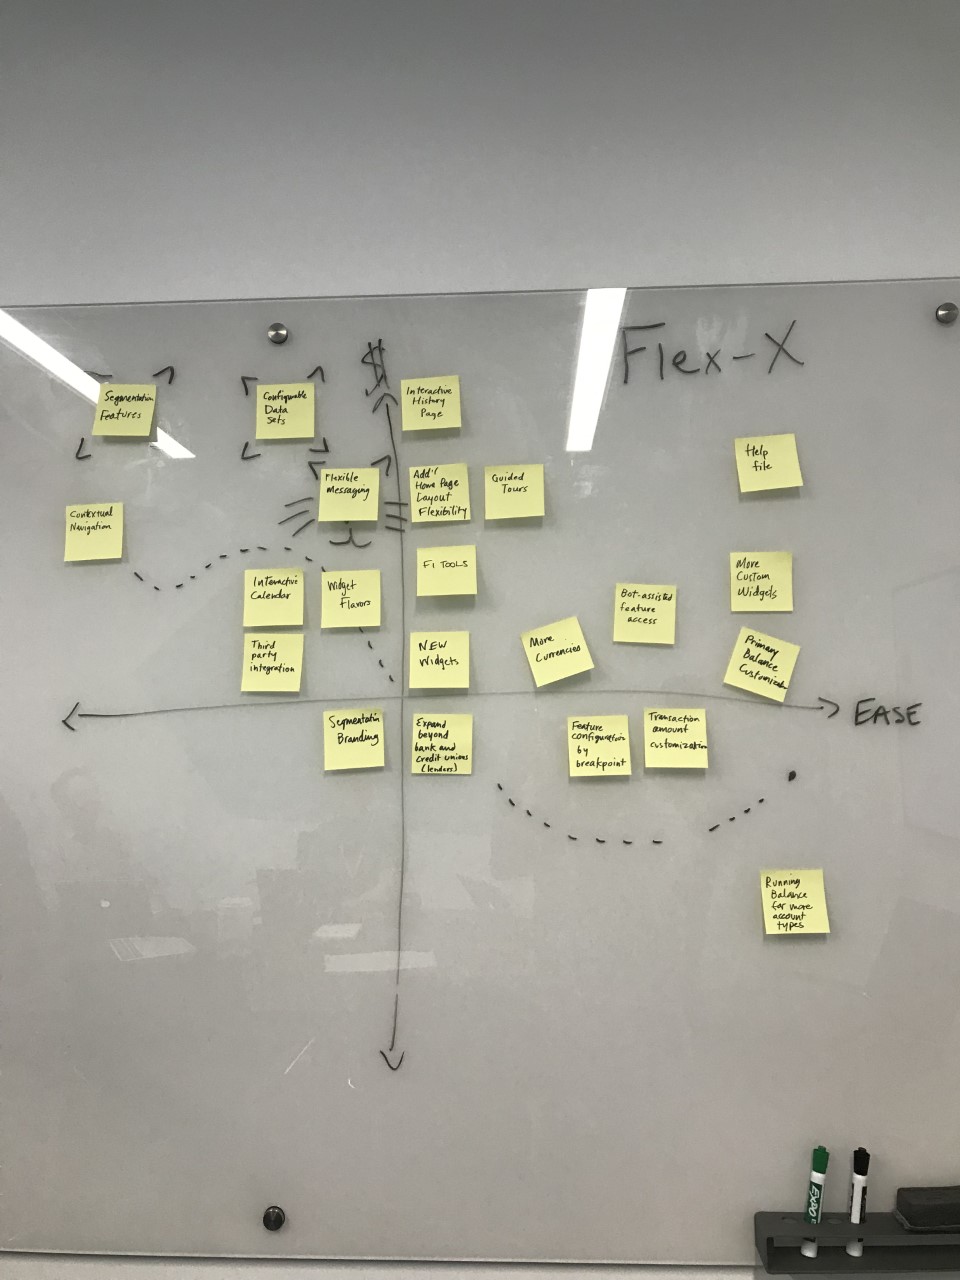 $
Flex-X
Segmentation
Features
Configurable
Data
Sets
Interactive
History
Page
Help
file
Flexible
Messaging
Add'l
Home Page
Layout
Flexibility
Guided
Tours
Contextual
Navigation
FI TOOLS
More
Custom
Widgets
Interactive
Calendar
Widget
Flavors
Bot-assisted
feature
access
Third
party
integration
NEW
Widgets
More
Currencies
Primary
Balance
Customization
EASE
Segmentation
Branding
Expand
beyond
bank and
credit unions
(lenders)
Feature
configuration
by
breakpoint
Transaction
amount
customization
Running
Balance
for more
account
types
EXPO